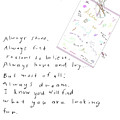 Always shine,
Always find
reasons to believe,
Always hope and try
But most of all;
Always dream.
I know you will find
what you are looking
for.